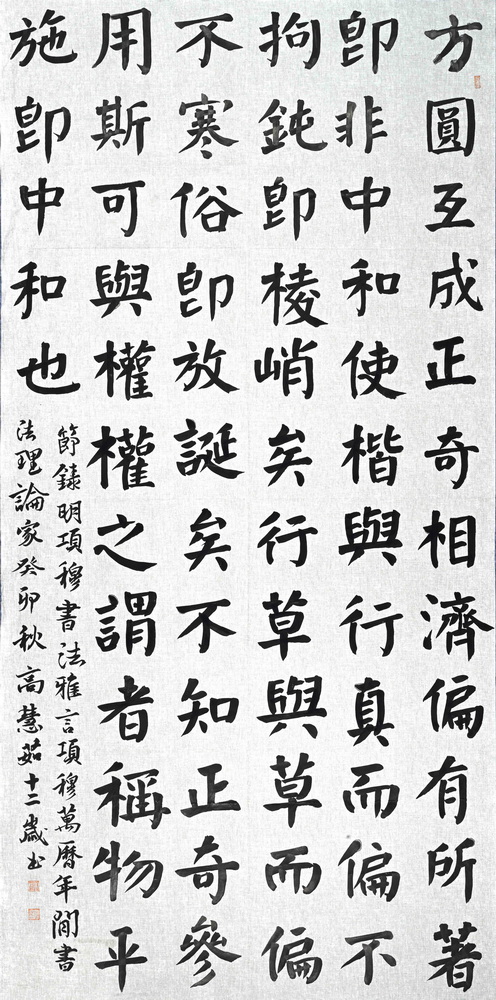 方圓互成正奇相濟偏有所著
卽非中和使楷與行真而偏不
拘鈍卽棱峭矣行草與草而偏
不寒俗卽放誕矣不知正奇參
用斯可與權權之謂者稱物平
施卽中和也
節錄明項穆書法雅言項穆萬曆年閒書
法理論家癸卯秋高慧茹十二歲书